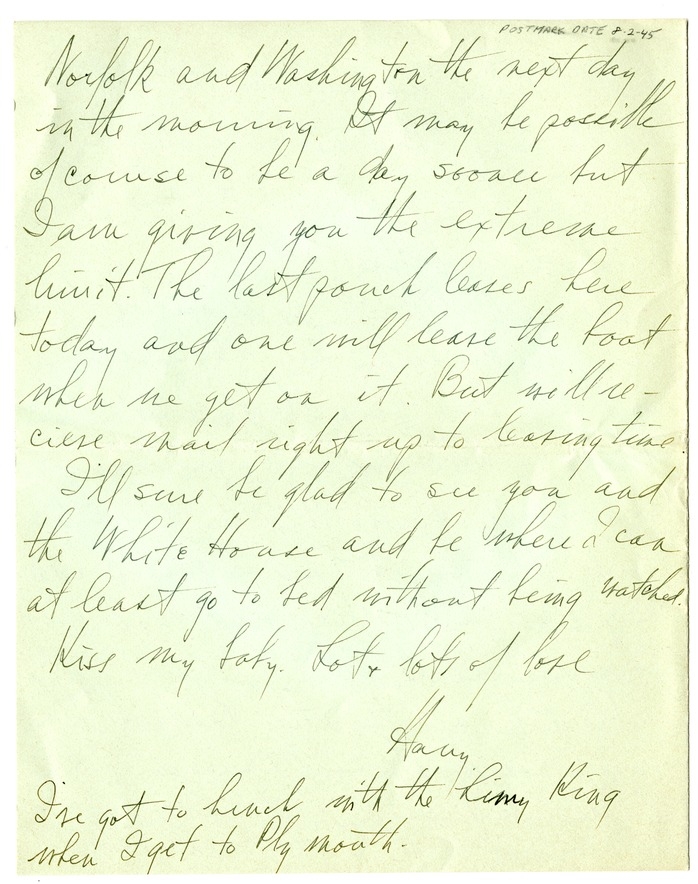 POSTMARK DATE 8-2-45
Norfolk and Washington the next day
in the morning. It may be possible
of course to be a day sooner but
I am giving you the extreme
limit. The last pouch leaves here
today and one will leave the boat
when we get on it. But will re-
cieve mail right up to leaving time.
I'll sure be glad to see you and
the White House and be where I can
at least go to bed without being watched.
Kiss my baby. Lots & lots of love
Harry
I've got to lunch with the Limy King
when I get to Plymouth.